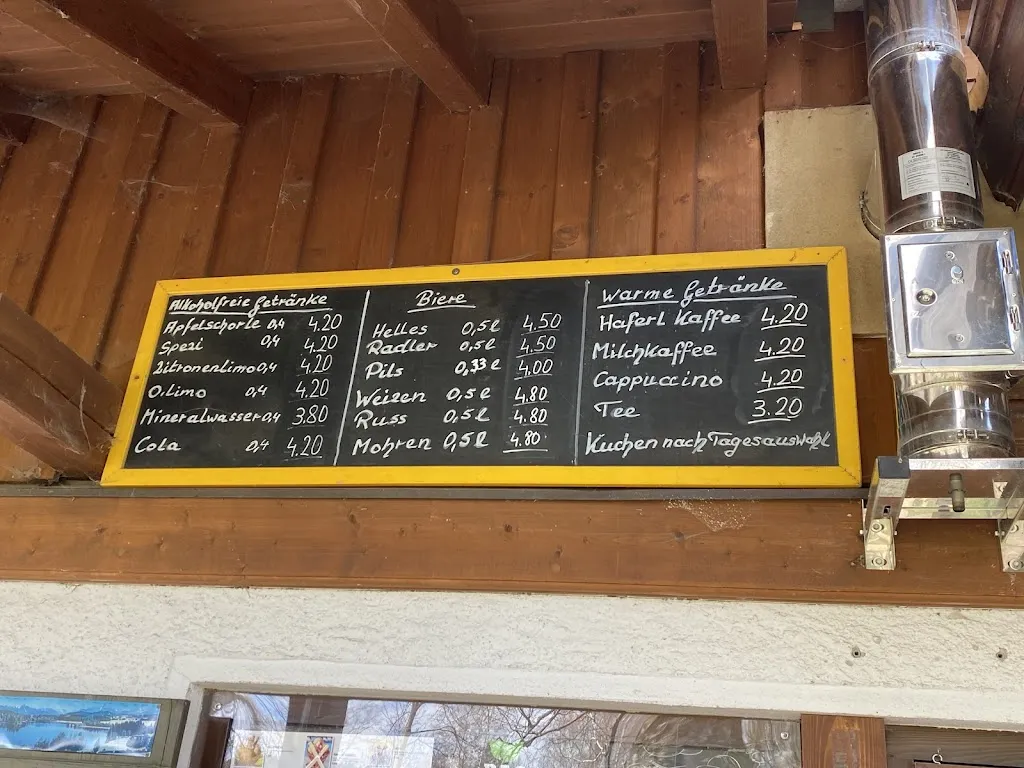 Alkoholfreie Getränke
Apfelschorle 0,4 4.20
Spezi 0,4 4.20
Zitronenlimo 0,4 4.20
O.Limo 0,4 4.20
Mineralwasser 0,4 3.80
Cola 0,4 4.20
Biere
Helles 0,5l 4.50
Radler 0,5l 4.50
Pils 0,33l 4.00
Weizen 0,5l 4.80
Russ 0,5l 4.80
Mohren 0,5l 4.80
Warme Getränke
Haferl Kaffee 4.20
Milchkaffee 4.20
Cappuccino 4.20
Tee 3.20
Kuchen nach Tagesauswahl